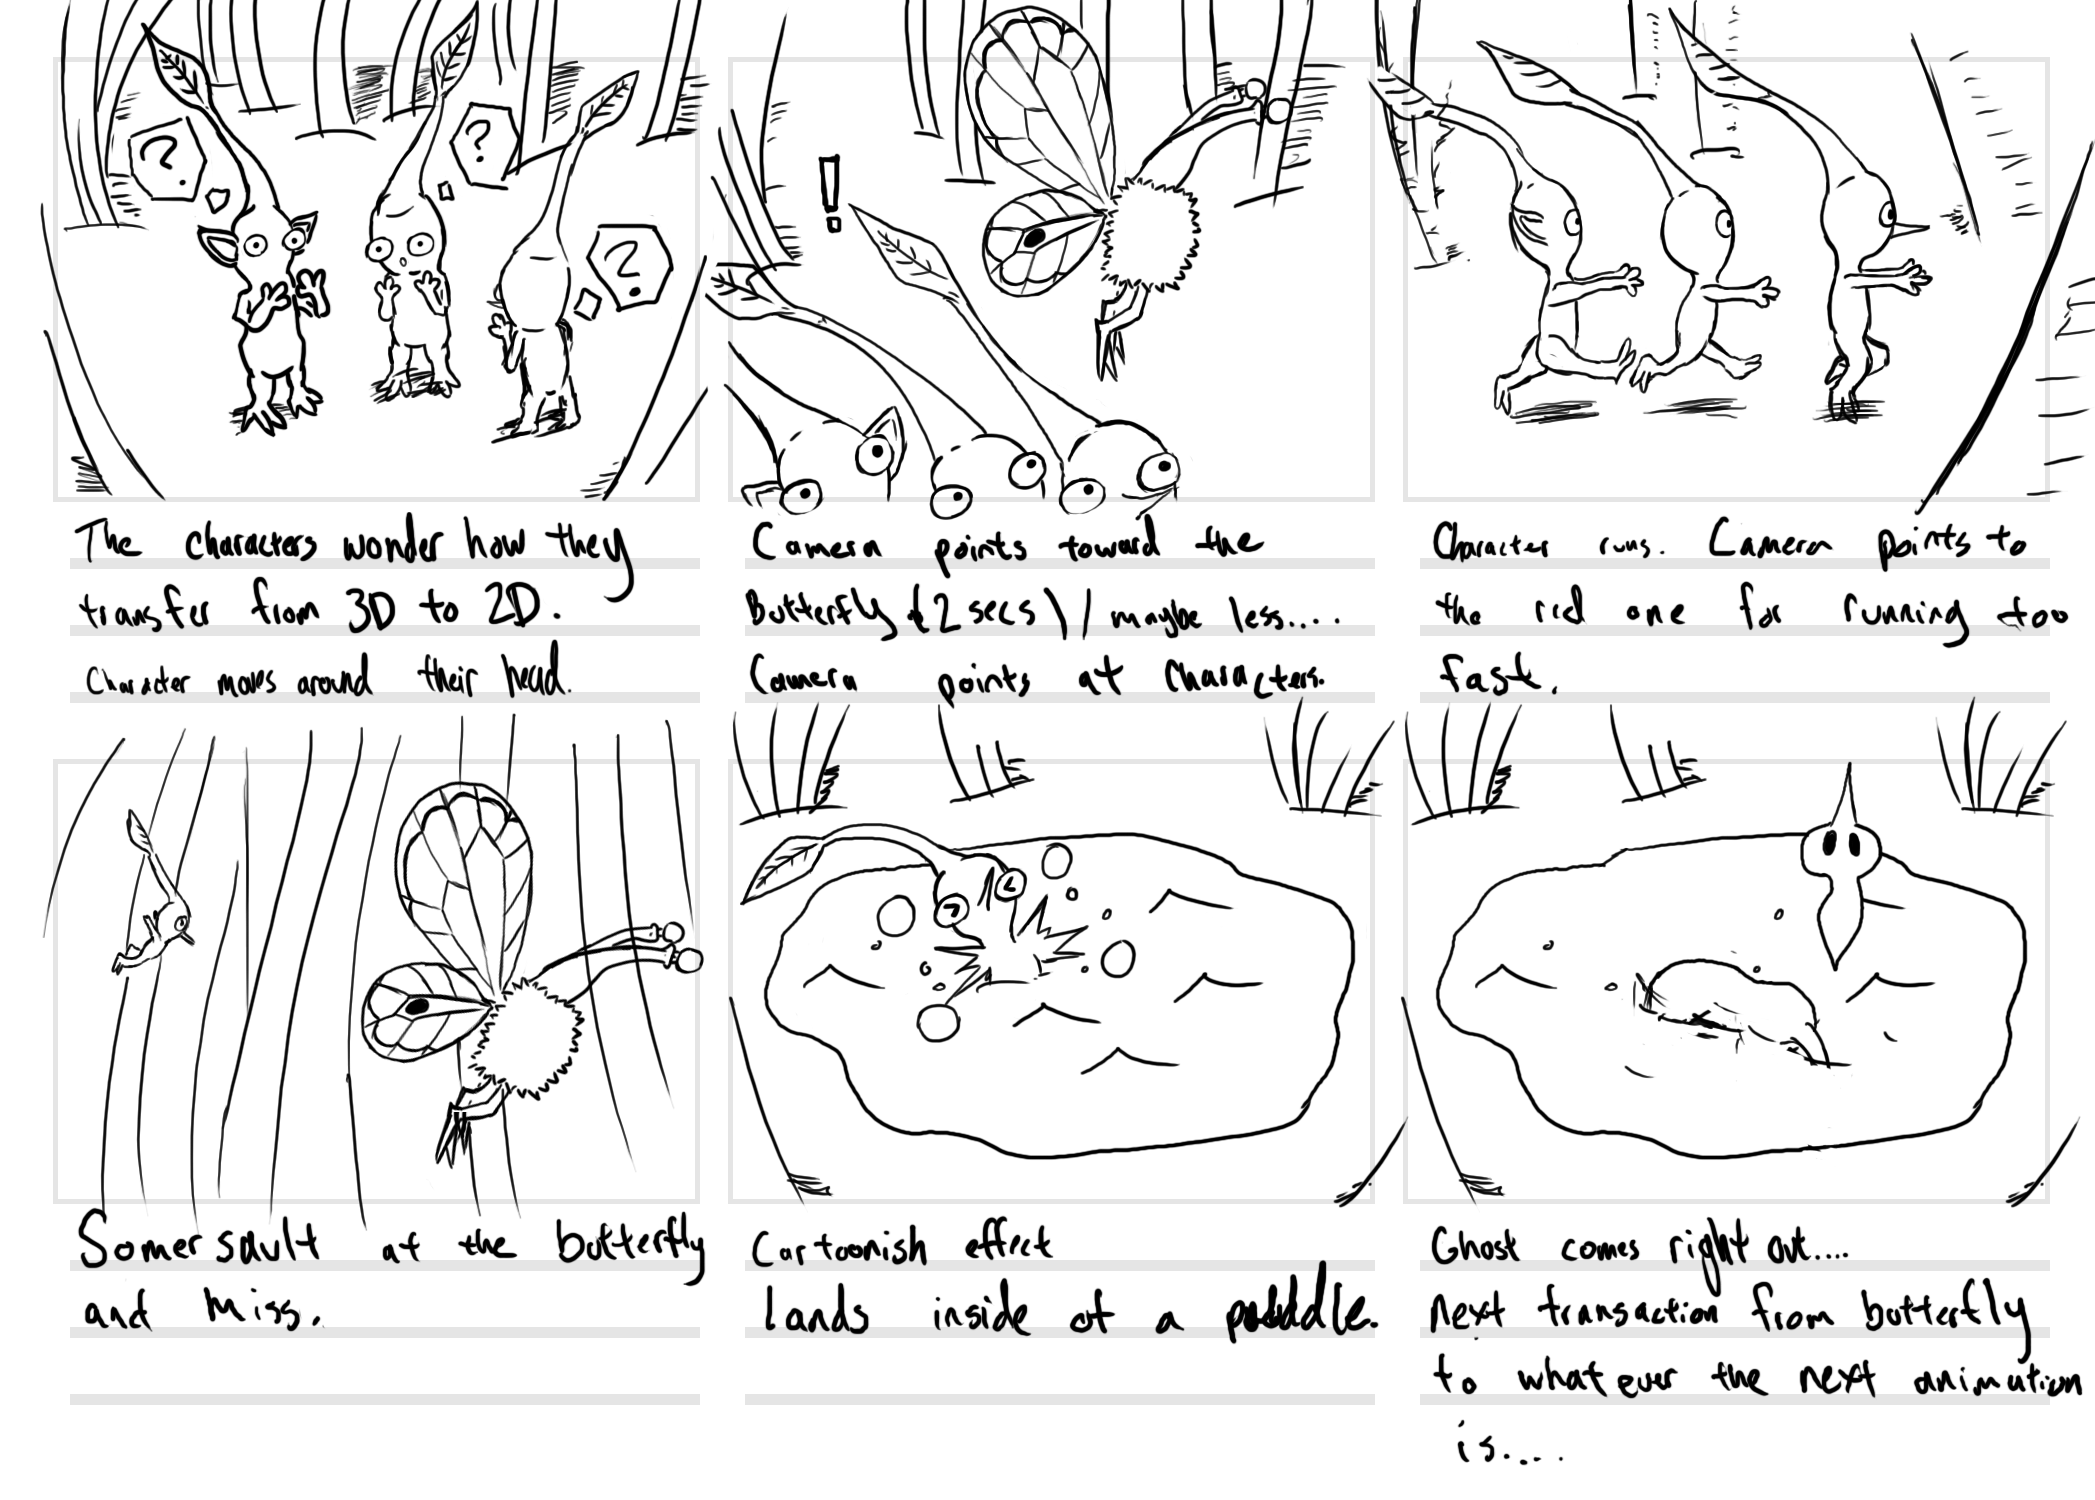 ?
?
?
!
The characters wonder how they
transfer from 3D to 2D.
Character moves around their head.
Camera points toward the
Butterfly (2 secs) / maybe less....
Camera points at characters.
Character runs. Camera points to
the red one for running too
fast.
Somersault at the butterfly
and miss.
Cartoonish effect
lands inside of a puddle.
Ghost comes right out....
next transaction from butterfly
to whatever the next animation
is....